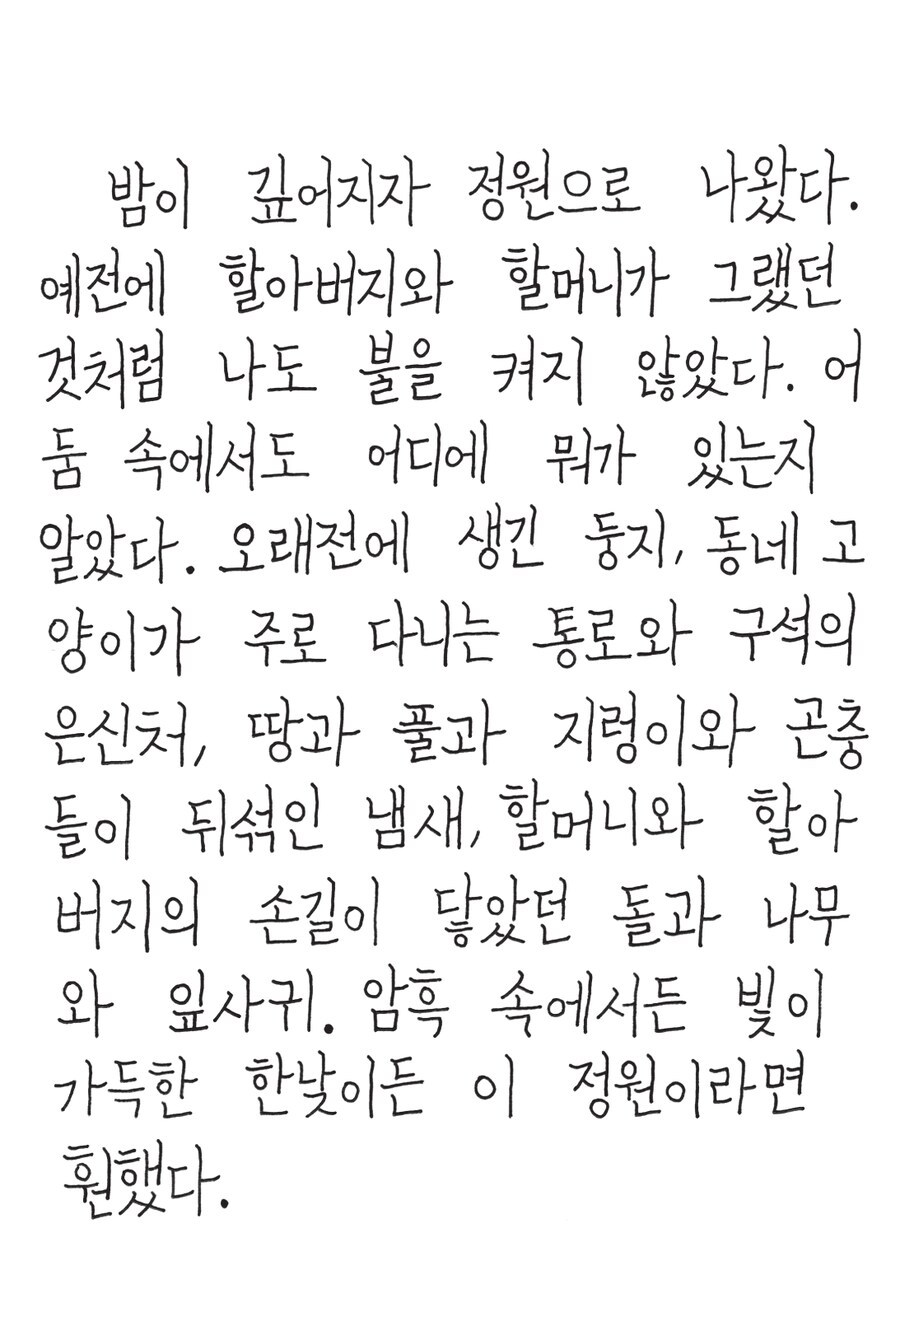 밤이 깊어지자 정원으로 나왔다.
예전에 할아버지와 할머니가 그랬던
것처럼 나도 불을 켜지 않았다. 어
둠 속에서도 어디에 뭐가 있는지
알았다. 오래전에 생긴 둥지, 동네 고
양이가 주로 다니는 통로와 구석의
은신처, 땅과 풀과 지렁이와 곤충
들이 뒤섞인 냄새, 할머니와 할아
버지의 손길이 닿았던 돌과 나무
와 잎사귀. 암흑 속에서든 빛이
가득한 한낮이든 이 정원이라면
훤했다.